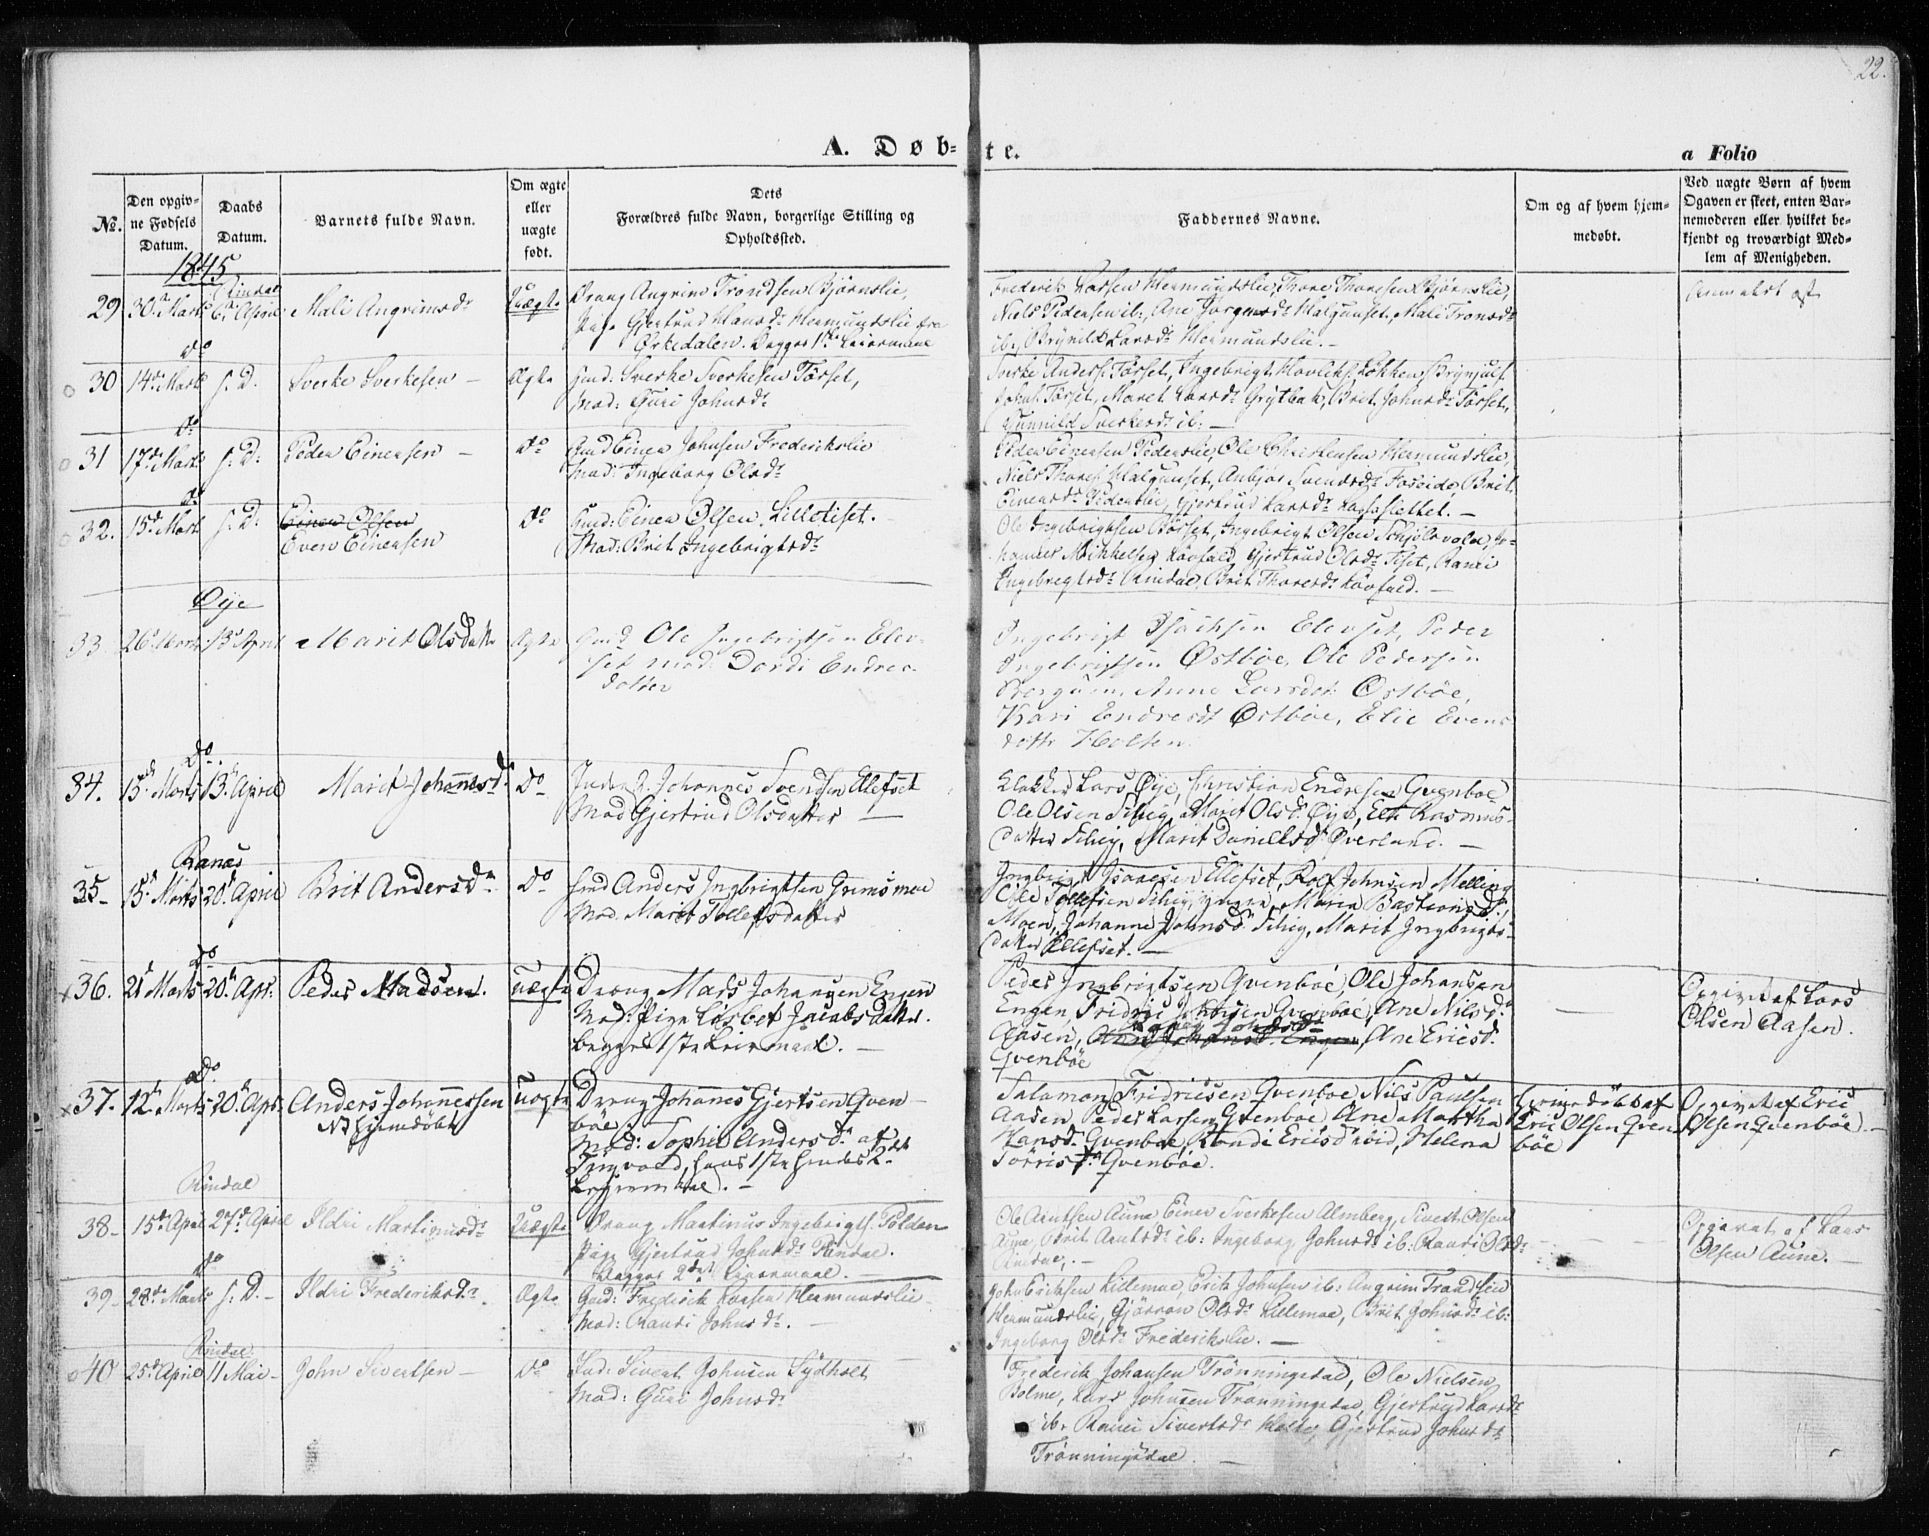 22.
A. Døb- te.
a Folio
No.
Den opgiv-
ne Fødsels
Datum.
Daabs
Datum.
Barnets fulde Navn.
Om ægte
eller
uægte
født.
Dets
Forældres fulde Navn, borgerlige Stilling og
Opholdssted.
Faddernes Navne.
Om og af hvem hjem-
medøbt.
Ved uægte Børn af hvem
Opgaven er skeet, enten Bar-
nemoderen eller hvilket be-
kjendt og troværdigt Med-
lem af Menigheden.
1845
Rindal
29 30te Marts 6te April Mali Angrimsdr Uægte Drang Angrim Trondsen Bjørnslie,
Pige Gjertrud Hansdr Hermundslie fra
Ørkedalen. Begges 1ste Leiermaal
Frederik Larsen Hermundslie, Thore Thoresen Bjørnslie,
Niels Pedersen ib:, Ane Jørgensdr Halgunset, Mali Tronsdr
ib:, Brynild Larsdr Hermundslie. -
Anmeldt af
do
30 14de Marts s. D. Sverke Sverkesen - Ægte Gmd: Sverke Sverkesen Tørset,
Mod: Guri Johnsdr
Sverke Anders. Tørset, Ingebrigt Løkken, Brynjulf
Johns. Tørset, Maret Larsdr Grytbak, Brit Johnsdr Tørset,
Gunnild Sverkesdr ib: -
do
31 17de Marts s: D: Peder Einersen - Do Gmd Einer Johnsen Frederikslie
Mod: Ingeborg Olsdr
Peder Einersen Pederslie, Ole Christensen Hermundslie,
Niels Thores. Halgunset, Anbjør Svendsdr Foseide, Brit
Einersdr Pederslie, Gjertrud Larsdr slettet. -
do
32. 15de Marts s: D: Einer Olsen
Even Einersen
Do Gmd: Einer Olsen Lilletiset.
Mod: Brit Ingebrigtsdr
Ole Ingebrigtsen Børset, Ingebrigt Olsen Schjølsvold, Jo-
hannes Mikkelsen Løvfald, Gjertrud Olsdr Tiset, Ranei
Ingebregtsdr Rindal, Brit Thoresdr Løvfald. -
Øije
33. 26de Marts 13de April Marit Olsdatter Ægte Gmd Ole Ingebrigtsen Elev-
set Mod: Dordi Endres-
datter
Ingebrigt Isachsen Elevset, Peder
Ingebrigtsen Østbøe, Ole Pedersen
Bergum, Anne Larsdtr Østbøe,
Kari Endresdt Østbøe, Elie Evens
dottr Holten
Do.
34. 13de Marts 13de April Marit Johannesdr Do Inderst. Johannes Svendsen Ellefset
Mod Gjertrud Olsdatter -
Klokker Lars Øye, Christian Endresen Qvenboe
Ole Olsen Sthig, Marit Olsdr Øye, Eli Rasmus-
datter Sthig, Marit Danielsdr Øverland. -
Ranes
35- 15de Marts 20de April Brit Andersdr Do Gmd Anders Ingbrigtsen Grimsmoe
Mod. Marit Tollefsdatter
Ingbrigt Isacsen Ellefset, Rolf Johnsen Melling
Ole Tollefsen Sthig yngre, Maria Bastiansdr
Moen, Johanne Johnsdr Sthig, Marit Ingbrigts-
datter Ellefset. -
Do
x36. 21de Marts 20de Apr. Peder Madsen. uægte Drang Mads Johansen Engen
Mod: Pige Lisbet Jacobsdatter.
begges 1ste Leiermaal. -
Peder Ingbrigtsen Qvenboe, Ole Johansen
Engen, Fridric Johnsen Qvenboe, Ane Nilsdr
Aasen, Ane Johansdr Engen, Ane Ericsdr
Qvenbøe
-
Opgivet af Lars
Olsen Aasen.
Do.
x37. 12te Marts 20de Apr. Anders Johannessen
NB hjemdøbt
uægte Drang Johanes Gjertsen Qven-
bøe. -
Mod: Sophie Andersdr af
Tingvold, hans 1ste hendes 2det
Leiermaal. -
Salamon Fridricsen Qvenboe, Nils Paulsen
Aasen, Peder Larsen Qvenboe, Ane Martha
Hansdr Qvenboe, Randi Ericsdr ibid, Helena
Tørrisdr Qvenbøe.
hjemmedøbt af
Eric Olsen Qven-
bøe
Opgivet af Eric
Olsen Qvenbøe. -
Rindal
38- 15de April 27de April Ildri Martinusdr Uægte Drang Martinus Ingebrigts. Polden
Pige Gjertrud Johnsdr Rindal.
Begges 2det Leiermaal. -
Ole Arntsen Aune Einer Sverkesen Almberg, Sivert Olsen
Aune, Brit Arntsdr ib: Ingeborg Johnsdr ib: Randi Olsdr
Rindal. -
Opgivet af Lars
Olsen Aune. -
do
39- 28de Marts s: D. - Ildri Frederiksdr Ægte Gmd: Frederik Larsen Hermundslie
Mod: Randi Johnsdr. -
John Eriksen Lillemoe, Erik Johnsen ib: Angrim Trondsen
Hermundslie, Gjørron Olsdr Lillemoe, Brit Johnsdr ib:
Ingeborg Olsdr Frederikslie. -
Rindal
40 25de April 11 Mai - John Sivertsen - Do Ind: Sivert Johnsen Sydholt
Mod: Guri Johnsdr
Frederik Johansen Trønningsdal, Ole Nielsen
Bolme, Lars Johnsen Trønningsdal, Gjertrud Larsdr
ib: Ranei Sivertsdr Holte, Gjertrud Johnsdr
Trønningsdal. -